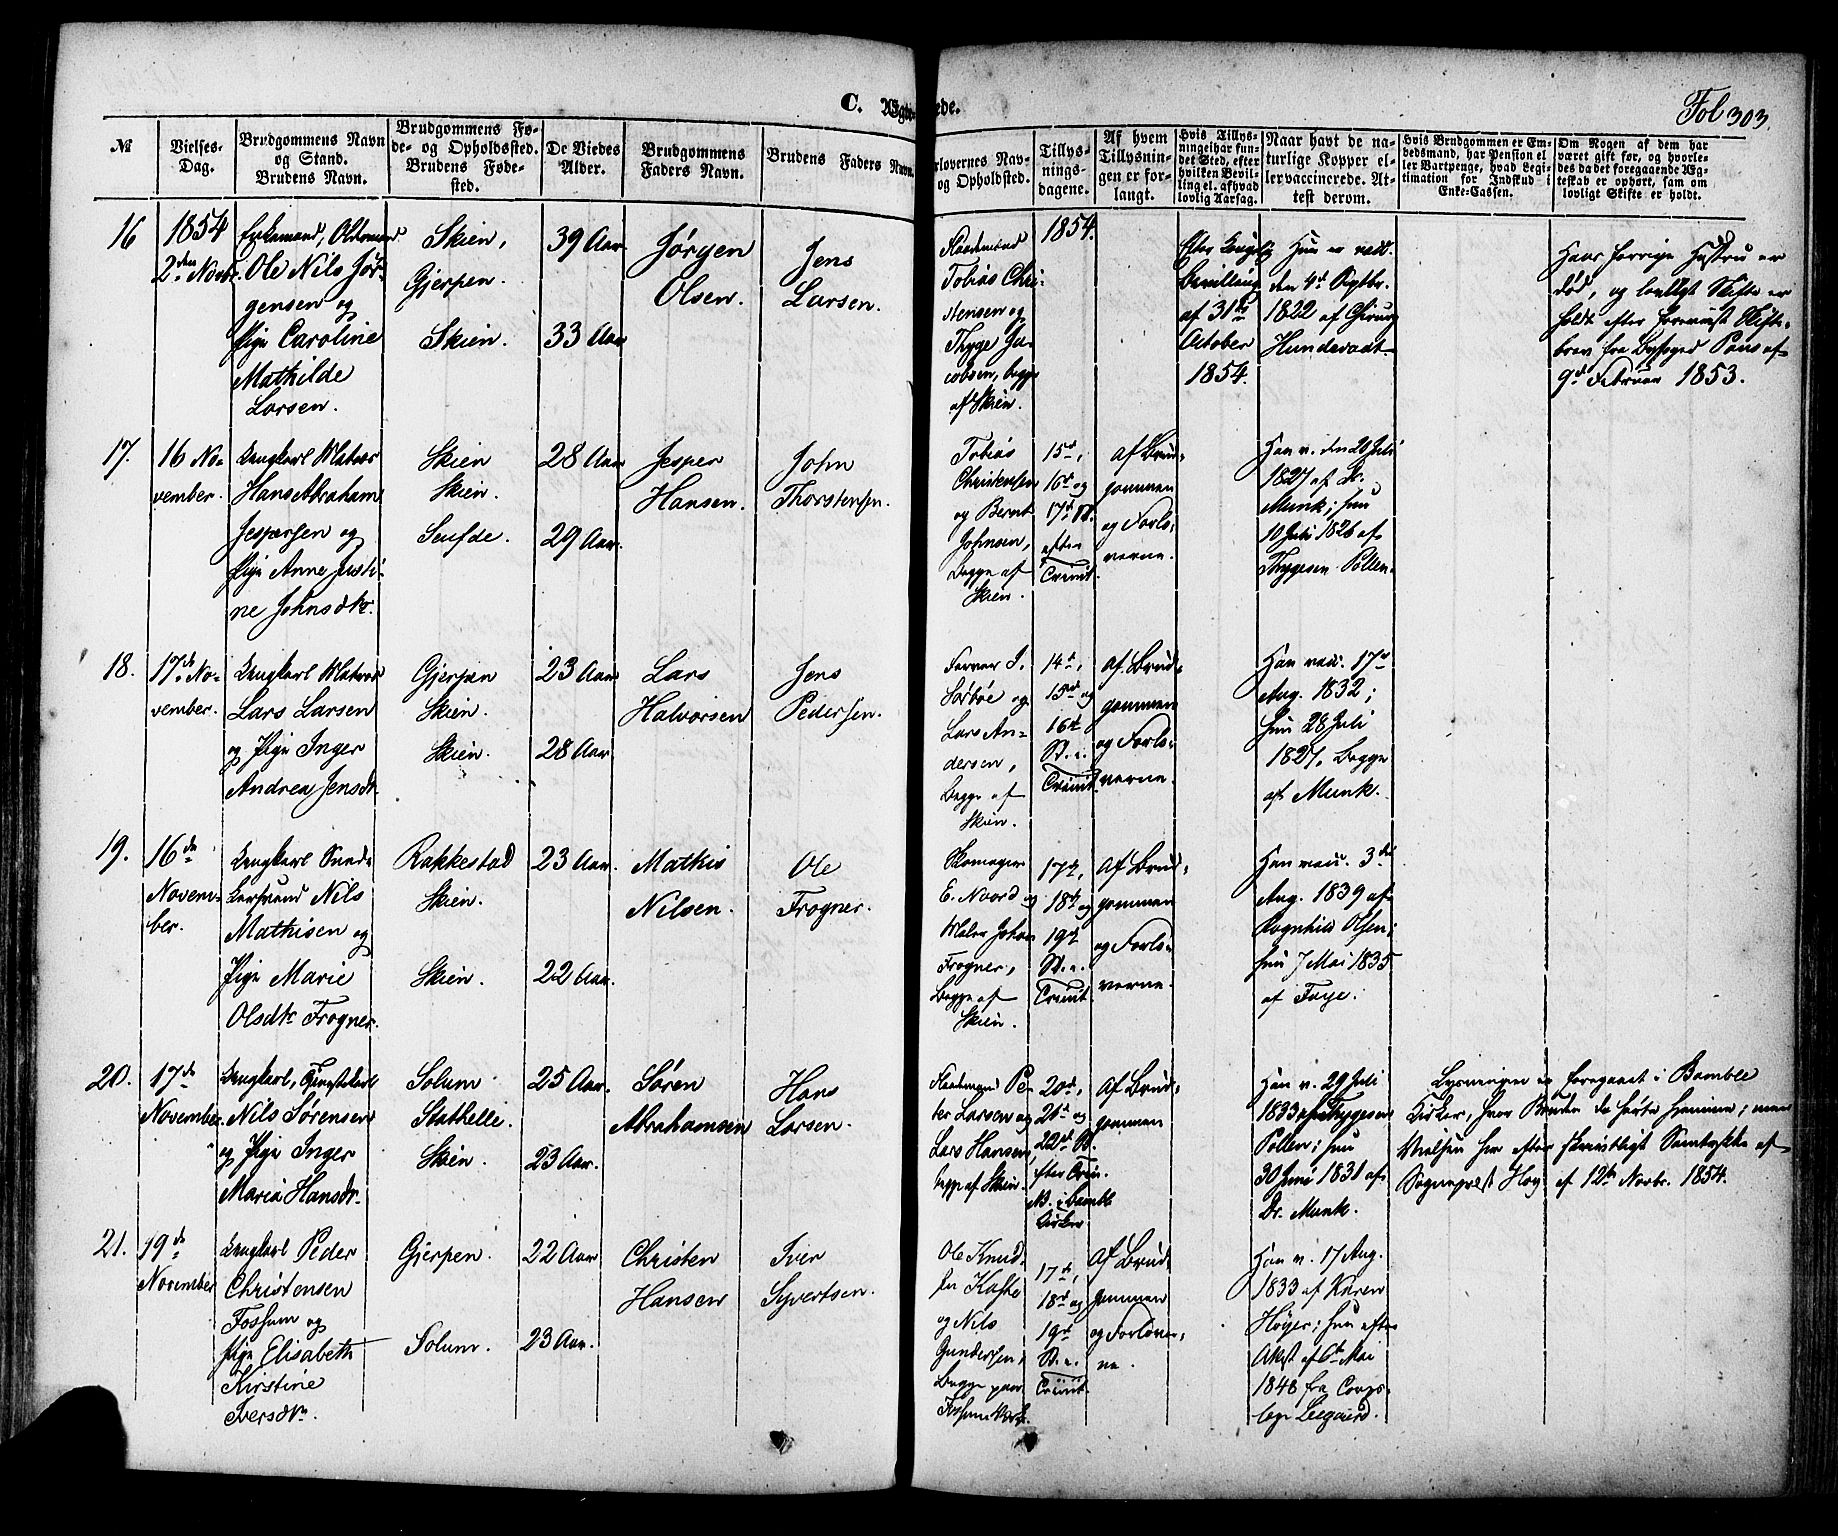 C. Ægte-
ede.
Fol 303.
№
Vielses-
Dag.
Brudgommens Navn
og Stand.
Brudens Navn.
Brudgommens Fø-
de- og Opholdsted.
Brudens Føde-
sted.
De Viedes
Alder.
Brudgommens
Faders Navn.
Brudens Faders Navn.
rlovernes Nav-
og Opholdsted.
Tillys-
nings-
dagene.
Af hvem
Tillysnin-
gen er for-
langt.
Hvis Tillys-
ning ei har fun-
det Sted, efter
hvilken Bevil-
ling el. af hvad
lovlig Aarsag.
Naar havt de na-
turlige Kopper el-
ler vaccinerede. At-
test derom.
Hvis Brudgommen er Em-
bedsmand, har Pension el-
ler Vartpenge, hvad Legi-
timation for Indskud i
Enke-Cassen.
Om Nogen af dem har
været gift før, og hvorle-
des da det foregaaende Æg-
teskab er ophørt, sam om
lovligt Skifte er holdt.
16
1854
2den Novbr.
Enkemand, Oldermand
Ole Nils Jør-
gensen og
Pige Caroline
Mathilde
Larsen.
Skien,
Gjerpen.
Skien.
39 Aar.
33 Aar
Jørgen
Olsen.
Jens
Larsen.
Tobias Chri-
stensen og
Thyge Ja-
cobsen, begge
af Skien.
1854.
Efter Kongelig
Bevilling
af 31te
October
1854.
Hun er vacc.
den 4de Septbr.
1822 af Chirurg
Hundevadt
Hans forrige Hustru er
død, og lovligt Skifte er
holdt efter foreviist Skifte-
brev fra Byfoged Paus af
9de Februar 1853.
17.
16 No-
vember.
Ungkarl Matros
Hans Abraham
Jespersen og
Pige Anne Justi-
ne Johnsdtr.
Skien
Skien.
28 Aar
29 Aar.
Jesper
Hansen.
John
Thorstensen.
Tobias
Christensen
og Bernt
Johnsen,
begge af
Skien.
15de,
16de og
17de S.
efter
Trinit.
af Brud-
gommen
og Forlo-
verne.
Han v. den 20 Juli
1827 af Dr.
Munk; hun
10 Juli 1826 af
Thygesen Pollen.
18.
17de No-
vember.
Ungkarl Matros
Lars Larsen
og Pige Inger
Andrea Jensdtr.
Gjerpen
Skien.
Skien.
23 Aar
28 Aar.
Lars
Halvorsen
Jens
Pedersen.
Farver J.
Sørbøe og
Lars An-
dersen,
begge af
Skien.
14de,
15de og
16de
S. e.
Trinit.
af Brud-
gommen
og Forlo-
verne.
Han vacc. 17de
Aug. 1832;
hun 28 Juli
1827, begge
af Munk.
19.
16de
Novem-
ber.
Ungkarl Sned-
kersvend Nils
Mathisen og
Pige Marie
Olsdtr Frogner.
Rakkestad
Skien.
Skien.
23 Aar.
22 Aar.
Mathis
Nilsen.
Ole
Frogner.
Skomager
E. Noord og
Maler Johan
Frogner,
begge af
Skien.
17de,
18de og
19de
S. e.
Trinit.
af Brud-
gommen
og Forlo-
verne.
Han vacc. 3die
Aug. 1839 af
Ragnhild Olsen;
hun 7 Mai 1835
af Faye.
20.
17de
November.
Ungkarl, Tjenstekarl
Nils Sørensen
og Pige Inger
Maria Hansdtr.
Solum
Stathelle.
Skien.
25 Aar.
23 Aar.
Søren
Abrahamsen
Hans
Larsen.
Pe-
ter Larsen og
Lars Hansen,
begge af Skien.
20de,
21de og
22de S.
efter Trin.
NB. i Bamble
Kirke.
af Brud-
gommen
Han v. 29 Juli
1833 af Thygesen
Pollen; hun
30 Juni 1831 af
Dr. Munk.
Lysningen er foregaaet i Bamble
Kirke, hvor Bruden da hørte hjemme; men
Vielsen her efter skriftligt Samtykke af
Sognepræst Høy af 12te Novbr. 1854.
21.
19de
November
Ungkarl Peder
Christensen
Fossum og
Pige Elisabeth
Kirstine
Iversdtr.
Gjerpen.
Solum.
22 Aar
23 Aar.
Christen
Hansen
Iver
Syvertsen.
Ole Knud-
sen Kaste
og Nils
Gundersen,
begge paa
Fossum Værk.
17de,
18de og
19de
S. e.
Trinit.
Af Brud-
gommen
og Forlover-
ne.
Han v. 17 Aug.
1833 af Karen
Høyer; hun efter
Attest af 6te Mai
1848 fra Corps-
læge Leegaard.